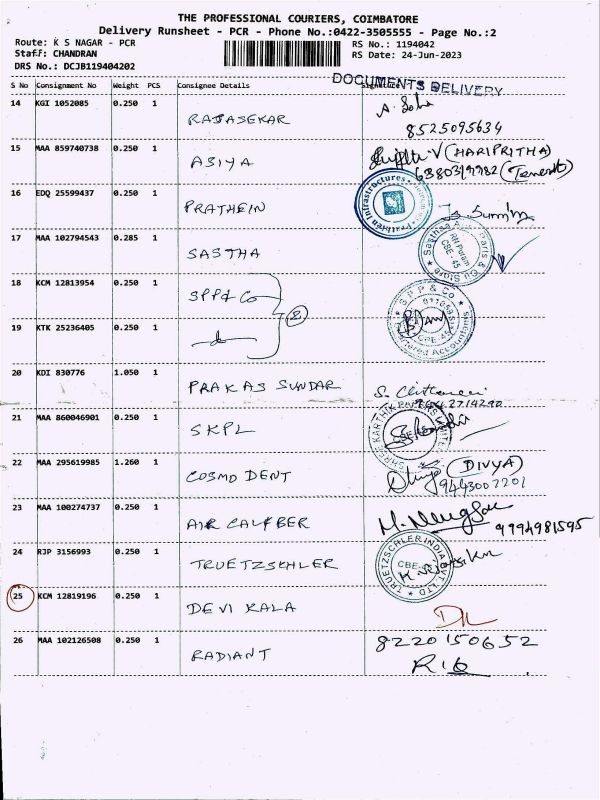 THE PROFESSIONAL COURIERS, COIMBATORE
Delivery Runsheet - PCR - Phone No.:0422-3505555 - Page No.:2
Route: K S NAGAR - PCR
RS No.: 1194042
Staff: CHANDRAN
RS Date: 24-Jun-2023
DRS No.: DCJB119404202
DOCUMENTS DELIVERY
S No Consignment No Weight PCS Consignee Details
14 KGI 1052085 0.250 1 RAJASEKAR
8525095634
15 MAA 859740738 0.250 1 ASIYA V (HARIPRITHA)
(Tenent)
16 EDQ 25599437 0.250 1 PRATHEIN
Prathien Infrastructures
17 MAA 102794543 0.285 1 SASTHA
RN Puram
CBE - 45
18 KCM 12813954 0.250 1 SPP & Co
S P P & Co
Chartered Accountants
2
19 KTK 25236405 0.250 1
20 KDI 830776 1.050 1 PRAKAS SUNDAR
21 MAA 860046901 0.250 1 SKPL
22 MAA 295619985 1.260 1 COSMO DENT (DIVYA)
9443007201
23 MAA 100274737 0.250 1 AIR CALIBER
9994981595
24 RJP 3156993 0.250 1 TRUETZSCHLER
TRUETZSCHLER INDIA PVT LTD
25 KCM 12819196 0.250 1 DEVI KALA
26 MAA 102126508 0.250 1 RADIANT
8220150652